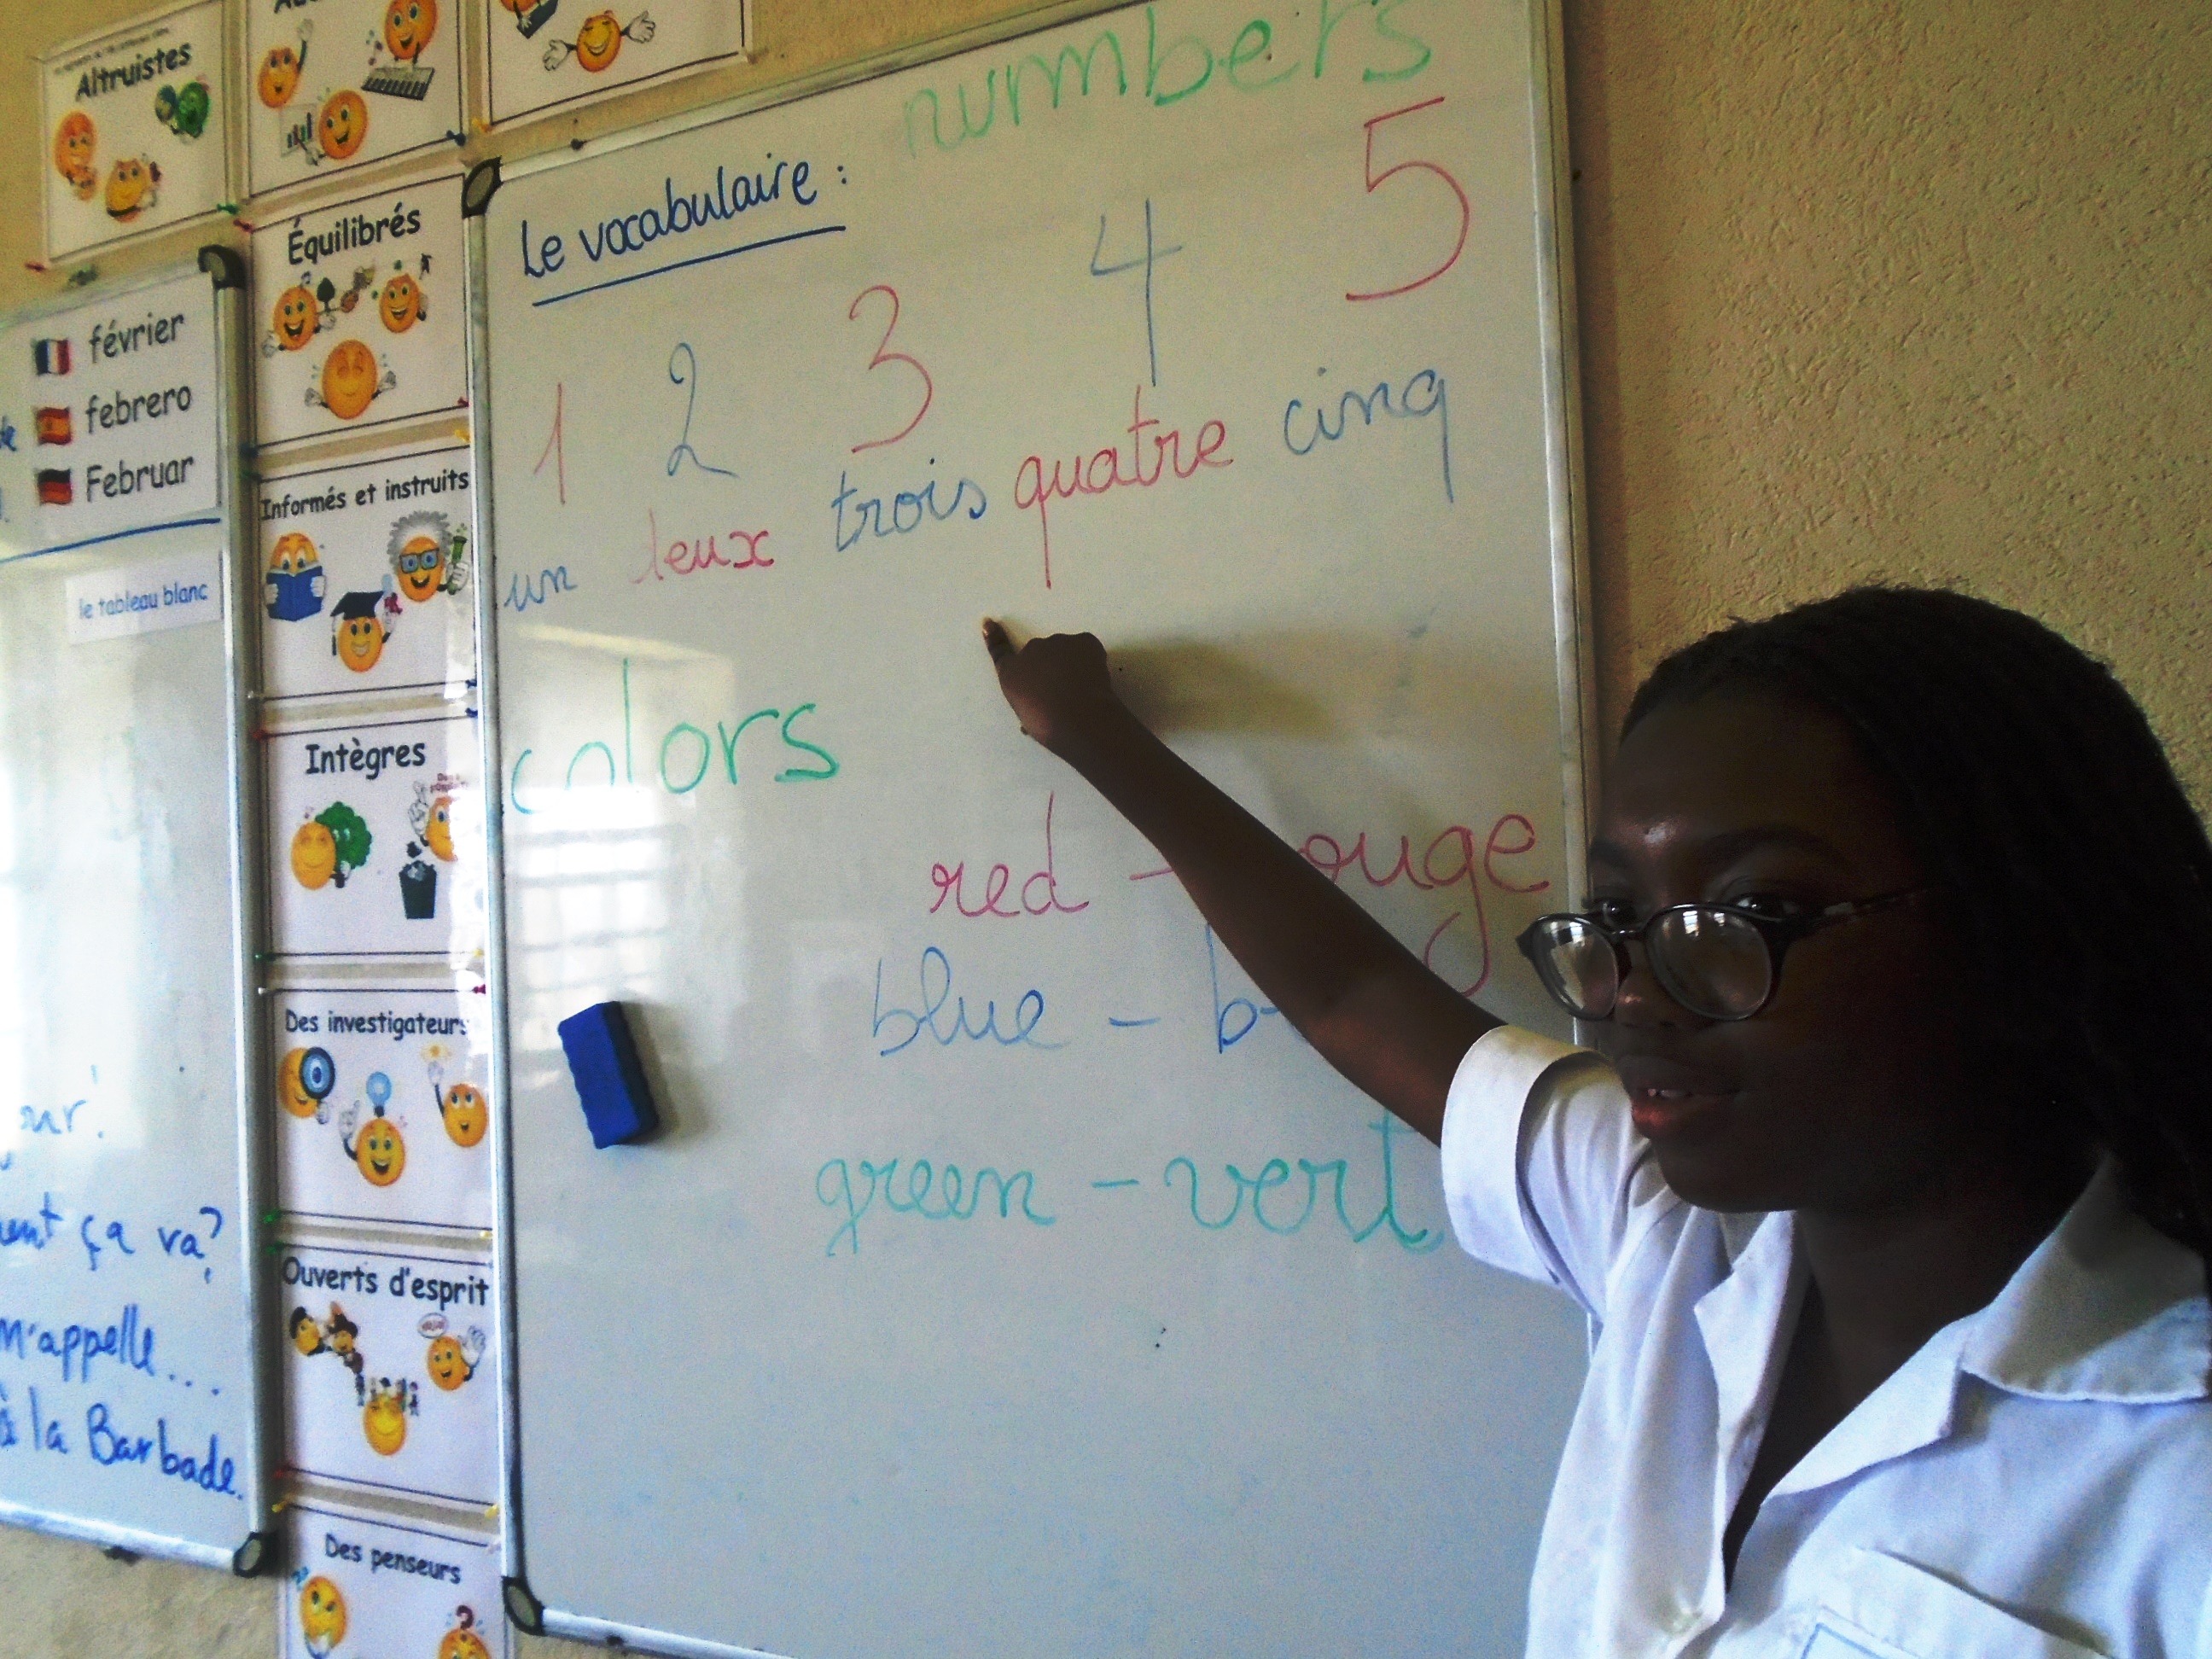 Altruistes
Équilibrés
Informés et instruits
Intègres
Des investigateurs
Ouverts d'esprit
Des penseurs
février
febrero
Februar
le tableau blanc
ça va?
m'appelle...
à la Barbade.
numbers
Le vocabulaire :
1 2 3 4 5
un deux trois quatre cinq
colors
red - rouge
blue - b
green - vert